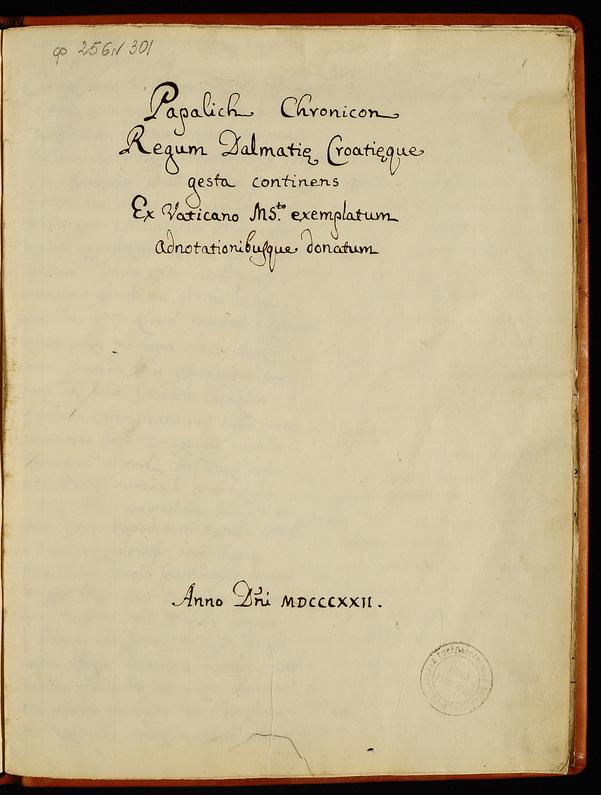 ф 256 N 301
1
Papalich Chronicon
Regum Dalmatię Croatięque
gesta continens
Ex Vaticano MS.to exemplatum
adnotationibusque donatum
Anno Dñi MDCCCXXII.